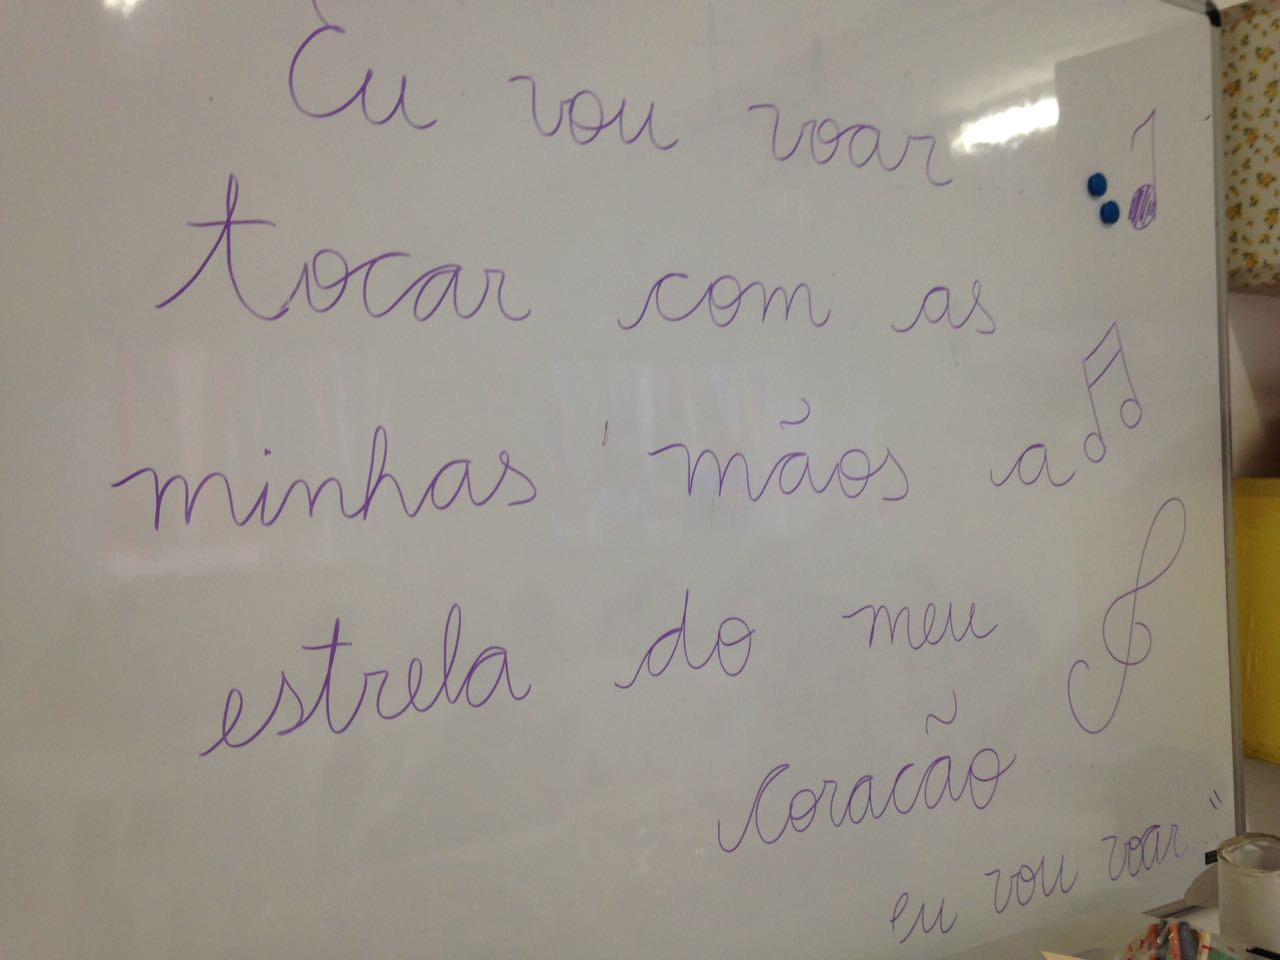 Eu vou voar
tocar com as
minhas mãos a
estrela do meu
coracão
eu vou voar..."